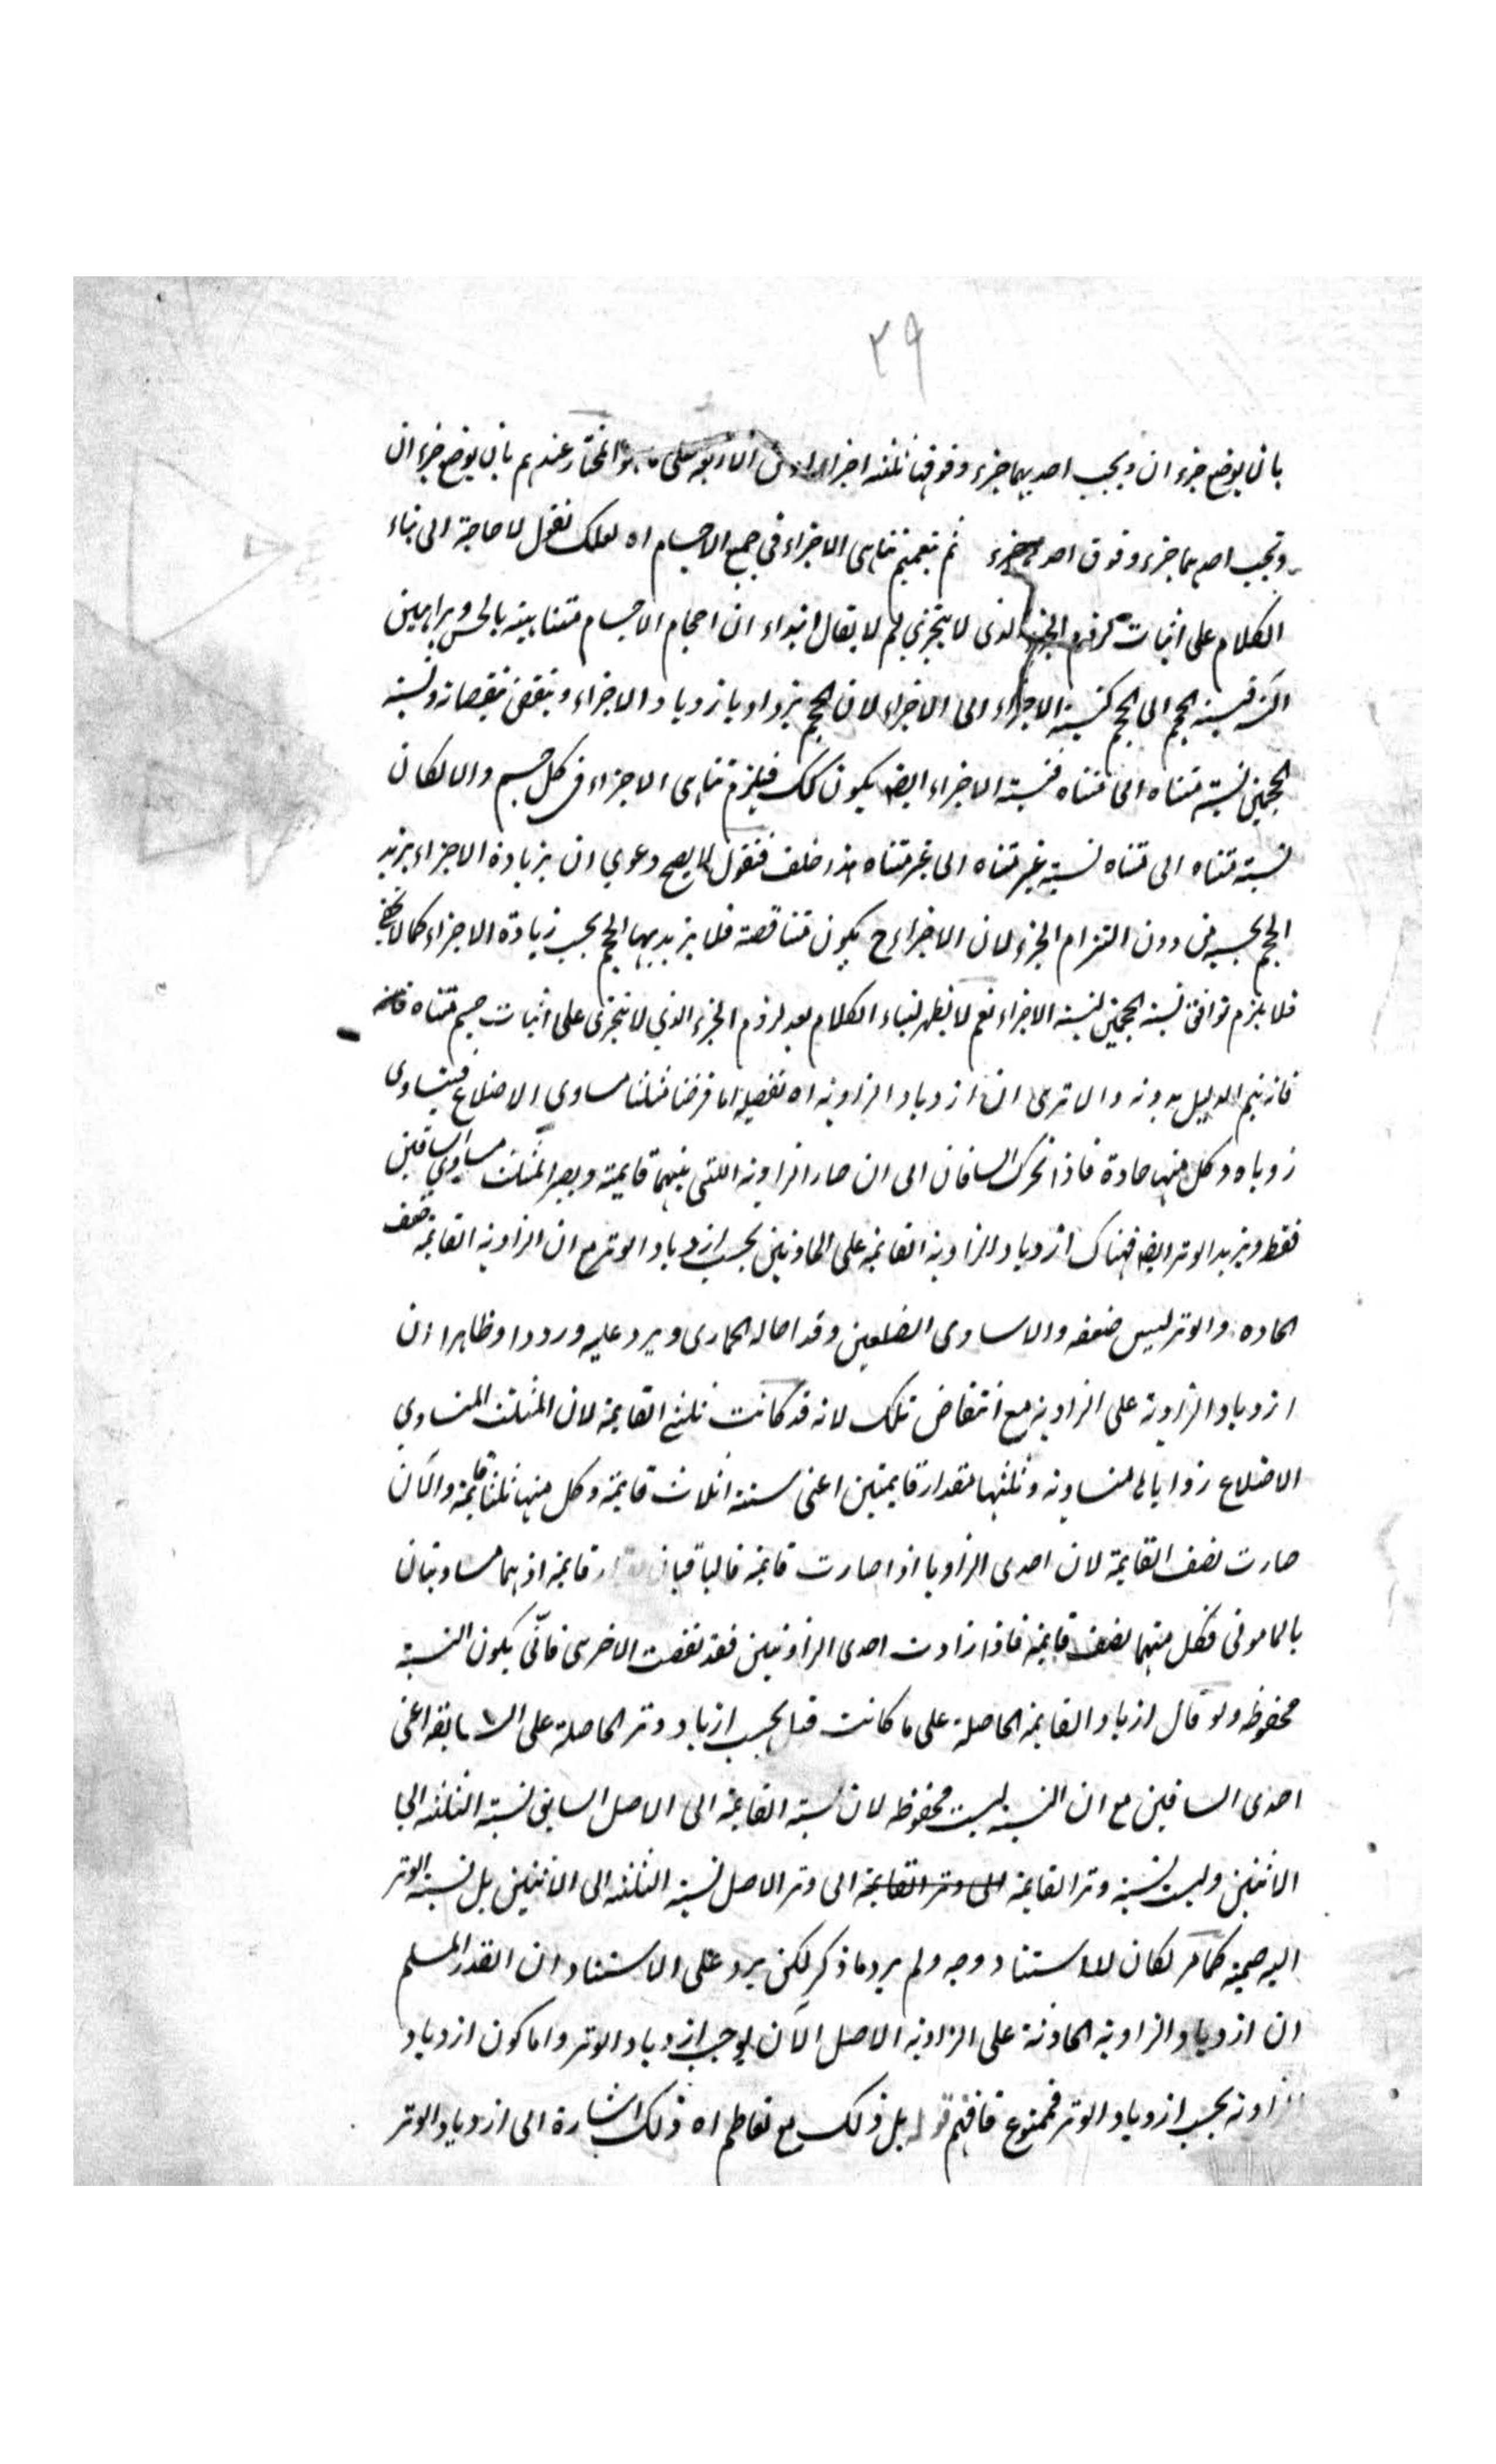 ٢٩
بان يوضع جزء ان وبجنب احديهما جزء وفوقها ثلثه اجزاء او من الاربعه على ما هو المختار عندهم بان يوضع جزء ان
وبجنب احديهما جزء وفوق احديهما جزء ثم بتعميم تناهى الاجزاء فى جميع الاجسام اه لعلك تقول لا حاجة الى بناء
الكلام على اثبات لزوم الجزء الذى لا يتجزى لم لا يقال ابتداء ان احجام الاجسام متناهيه بالحس وبراهين
اخر فنسبة الحجم الى الحجم كنسبة الاجزاء الى الاجزاء لان الحجم يزداد بازدياد الاجزاء وينقص بنقصانه ونسبة
الحجمين نسبة متناه الى متناه فنسبة الاجزاء ايضه يكون كك فيلزم تناهى الاجزاء فى كل جسم والا لكان
نسبة متناه الى متناه نسبة غير متناه الى غير متناه هذا خلف فنقول لا يصح دعوي ان بزيادة الاجزاء يزيد
الحجم بحسبه من دون التزام الجزء لان الاجزاء ح يكون متناقصة فلا يزيد بها الحجم بحسب زيادة الاجزاء كما لا يخفى
فلا يلزم توافق نسبة الحجمين لنسبة الاجزاء نعم لا يظهر لبناء الكلام بعد لزوم الجزء الذي لا يتجزى على اثبات جسم متناه فانه
فانه يتم الدليل بدونه والا ترى ان ازدياد الزاويه اه تفصيله اما فرضنا مثلثا مساوى الاضلاع فيتساوى
زوياه وكل منها حادة فاذا تحرك الساقان الى ان صار الزاويه اللتى بينهما قايمة ويصير المثلث مساوي الساقين
فقط ويزيد الوتر ايضه فهناك ازدياد الزاويه القائمه على الحادتين بحسب ازدياد الوتر مع ان الزاويه القائمه ضعف
الحاده والوتر ليس ضعفه والا ساوى الضلعين وقد احاله الحمارى ويرد عليه ورودا وظاهرا ان
ازدياد الزاوية على الزاويه مع انتقاض تلك لانه قد كانت ثلثى القايمة لان المثلث المتساوي
الاضلاع زواياه متساويه وثلثها مقدار قايمتين اعنى ستة اثلاث قايمة وكل منها ثلثا قايمة والآن
صارت نصف القايمة لان احدى الزاويا اذا صارت قائمه فالباقيان مقدار قايمة اذ هما مساويتان
بالمامونى فكل منهما نصف قايمة فاذا زادت احدى الزاويتين فقد نقصت الاخرى فانّى يكون النسبة
محفوظه ولو قال ازياد القايمة الحاصلة على ما كانت قبل بحسب ازياد وتر الحاصلة على السابقه اعنى
احدى الساقين مع ان النسبة ليست محفوظه لان نسبة القايمة الى الاصل السابق نسبة الثلثه الى
الاثنين وليست نسبة وتر القايمة الى وتر القايمة الى وتر الاصل نسبة الثلثه الى الاثنين بل نسبة الوتر
اليه صمية كما مر لكان للاستناد وجه ولم يرد ما ذكر لكن يرد على الاستناد ان القدر المسلم
ان ازدياد الزاويه الحادثة على الزاويه الاصل الآن يوجب ازدياد الوتر واما كون ازدياد
الزاويه بحسب ازدياد الوتر فممنوع فافهم قوله بل ذلك مع تعاظم اه ذلك اشارة الى ازدياد الوتر